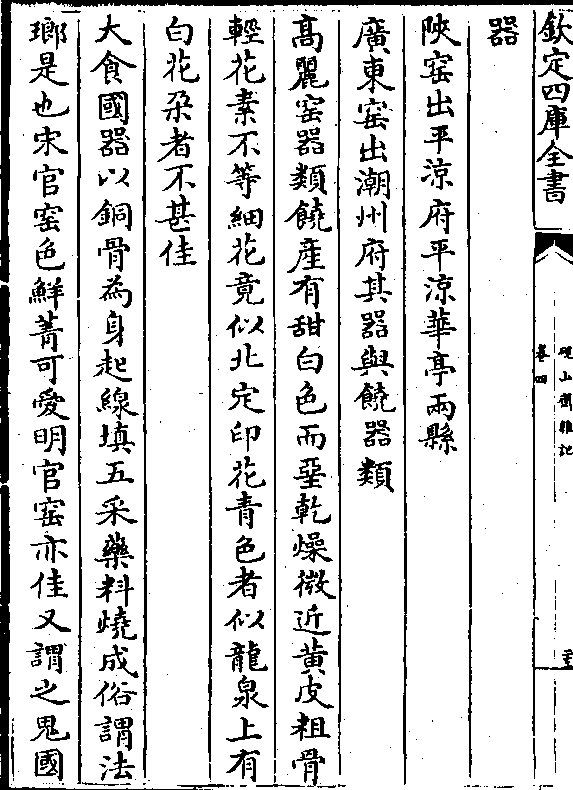 欽定四庫全書
硯山齋雜記
卷四
器
陜窑出平涼府平涼華亭兩縣
廣東窑出潮州府其器與饒器類
高麗窑器類饒産有甜白色而堊乾燥微近黄皮粗骨
輕花素不等細花竟似北定印花青色者似龍泉上有
白花朶者不甚佳
大食國器以銅骨為身起線填五采藥料燒成俗謂法
瑯是也宋官窑色鮮菁可愛明官窑亦佳又謂之鬼國